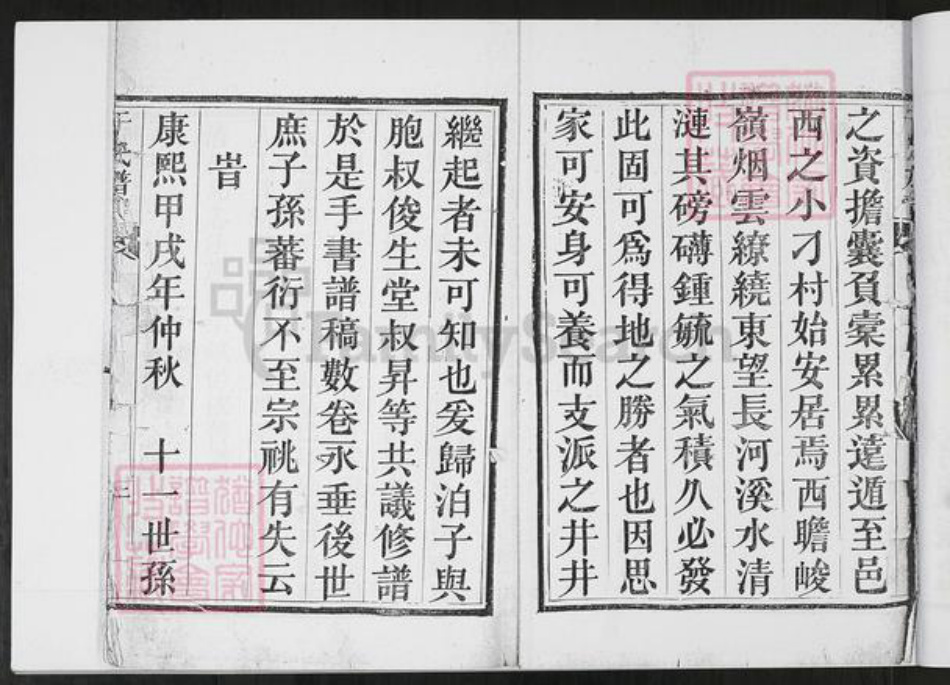 之資擔囊負橐累累逺遁至邑
西之小刁村始安居焉西瞻峻
嶺烟雲繚繞東望長河溪水清
漣其磅礴鍾毓之氣積久必發
此固可爲得地之勝者也因思
家可安身可養而支派之井井
繼起者未可知也爰歸泊子與
胞叔俊生堂叔昇等共議修譜
於是手書譜稿數卷永垂後世
庶子孫蕃衍不至宗祧有失云
旹
康熙甲戌年仲秋 十一世孫
FamilySearch